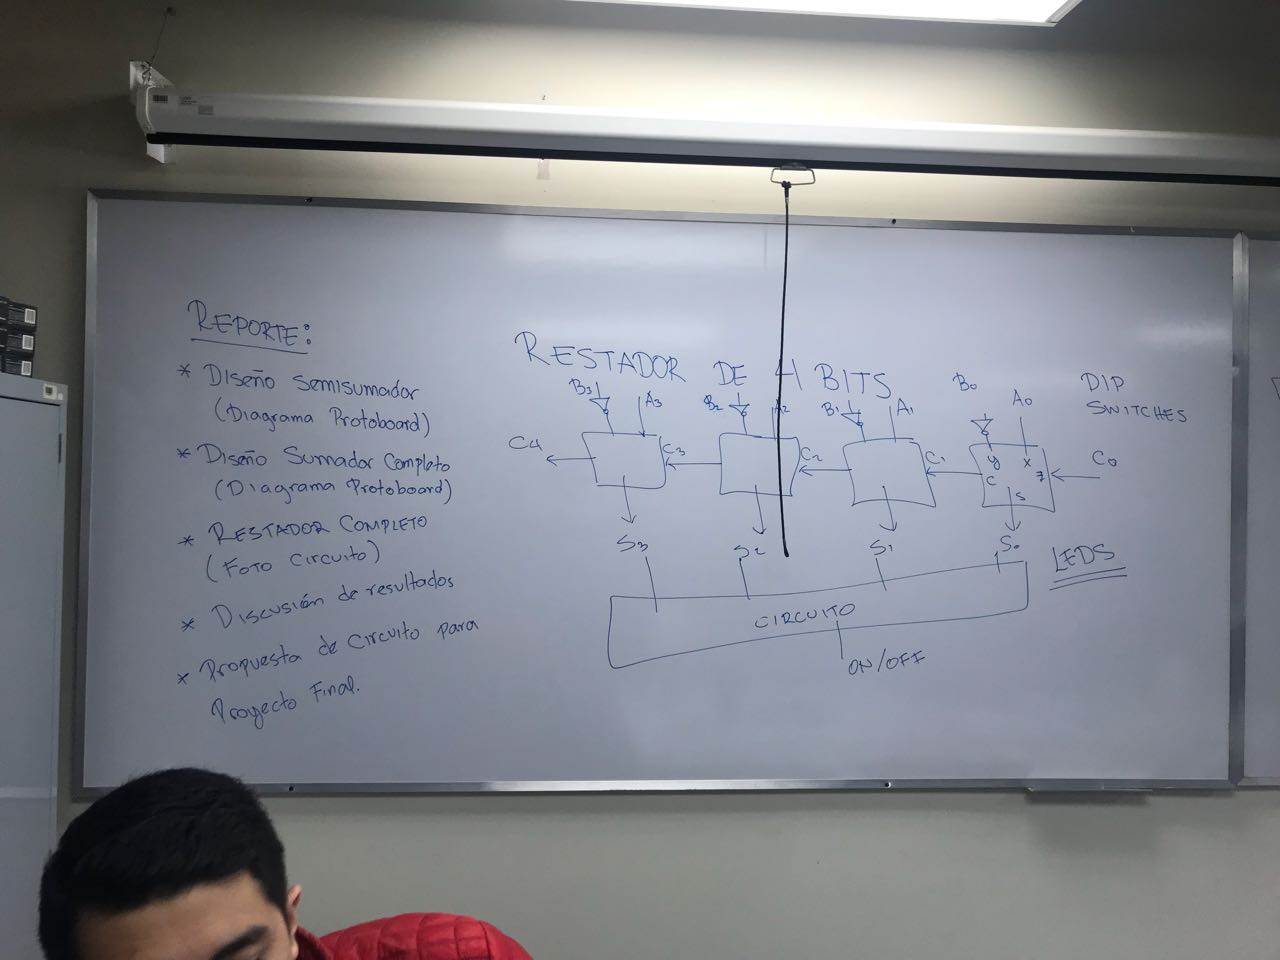 REPORTE:
* Diseño Semisumador
(Diagrama Protoboard)
* Diseño Sumador Completo
(Diagrama Protoboard)
* RESTADOR COMPLETO
(FOTO CIRCUITO)
* Discusión de resultados
* Propuesta de circuito para
Proyecto Final.
RESTADOR DE 4 BITS
DIP
SWITCHES
B3 A3 B2 A2 B1 A1 B0 A0
C4 C3 C2 C1 C0
y x z
c s
S3 S2 S1 S0
LEDS
CIRCUITO
ON/OFF